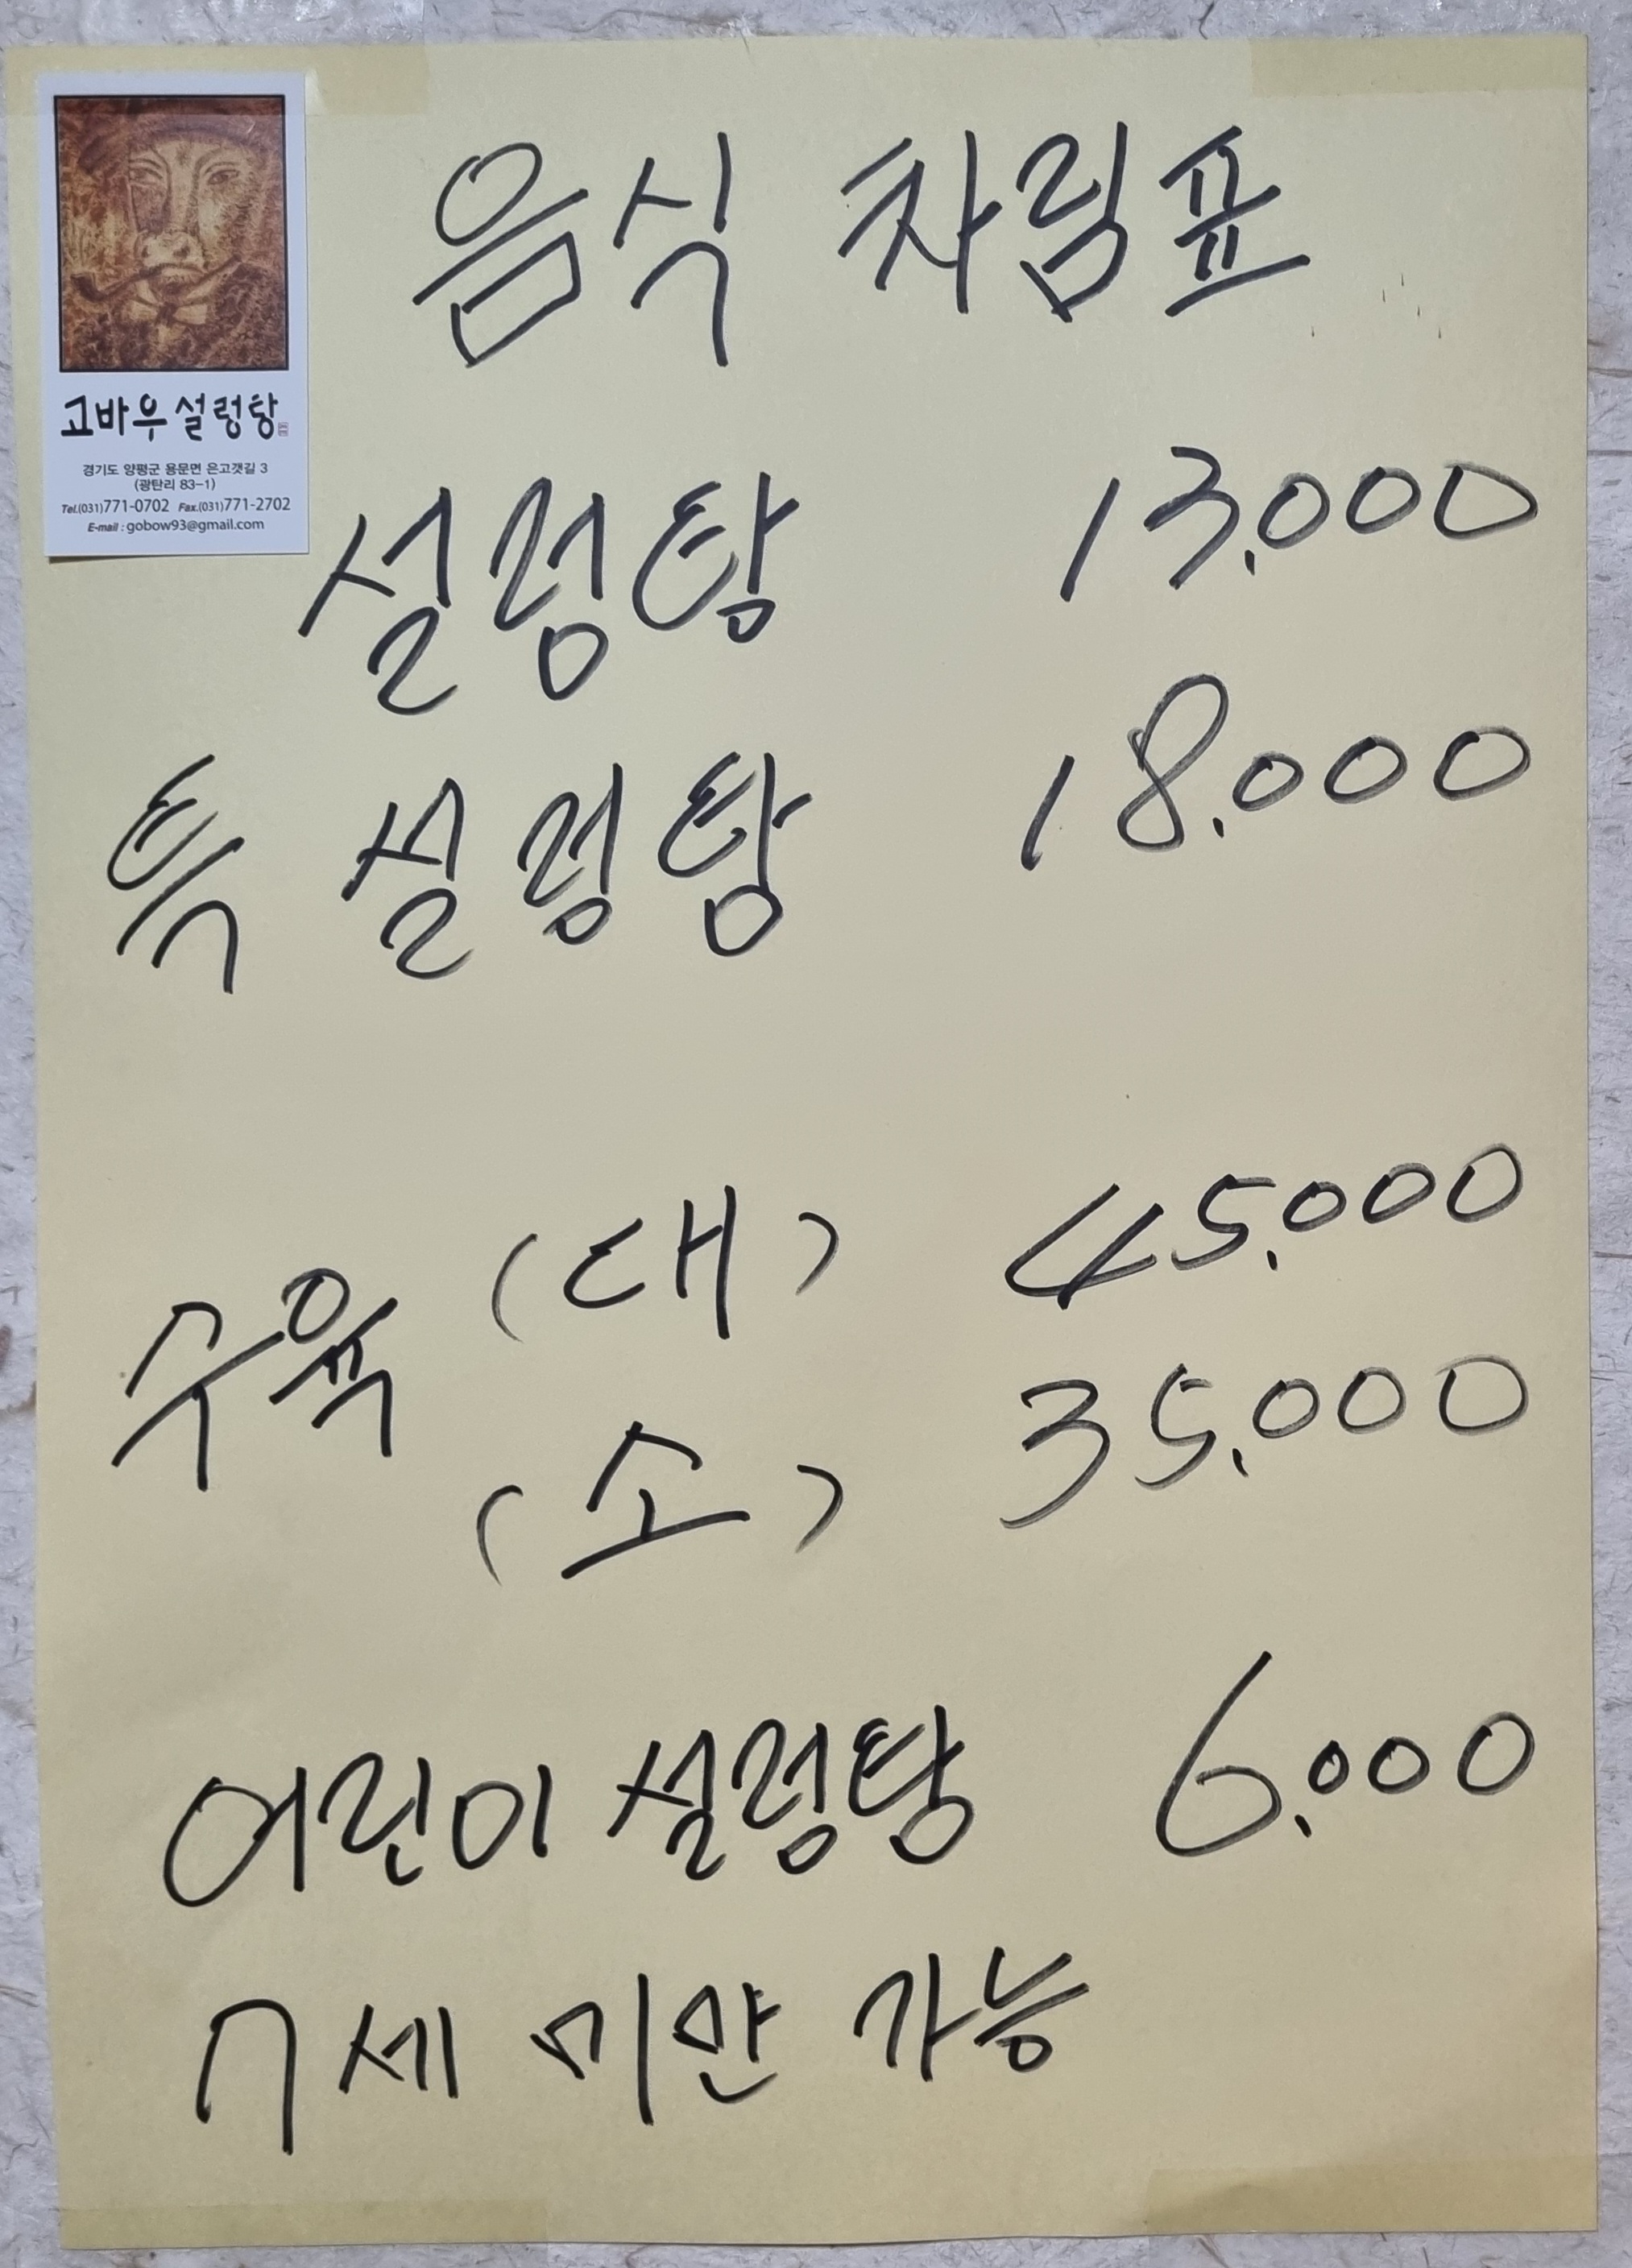 음식 차림표
고바우 설렁탕
경기도 양평군 용문면 은고갯길 3
(광탄리 83-1)
Tel.(031)771-0702 Fax.(031)771-2702
E-mail : gobow93@gmail.com
설렁탕 13,000
특 설렁탕 18,000
수육 (대) 45,000
(소) 35,000
어린이 설렁탕 6,000
7세 미만 가능